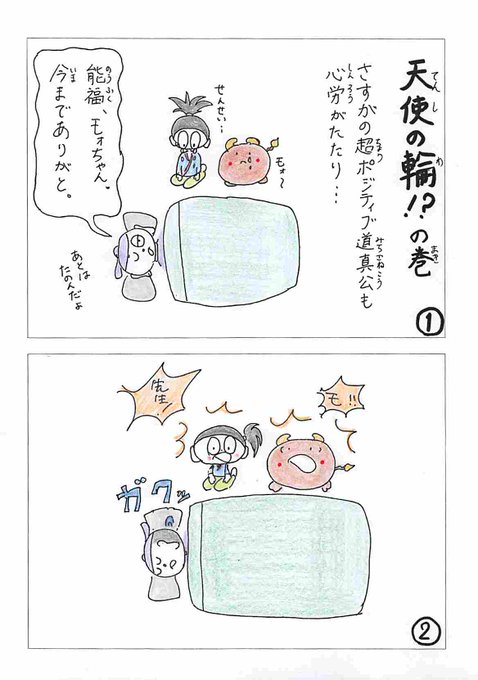 天使の輪!?の巻
さすがの超ポジティブ道真公も
心労がたたり…
せんせい…
モォ〜
能福、モォちゃん。
今までありがと。
あとは
たのんだよ
①
モ!!
先生!
ガクッ
②